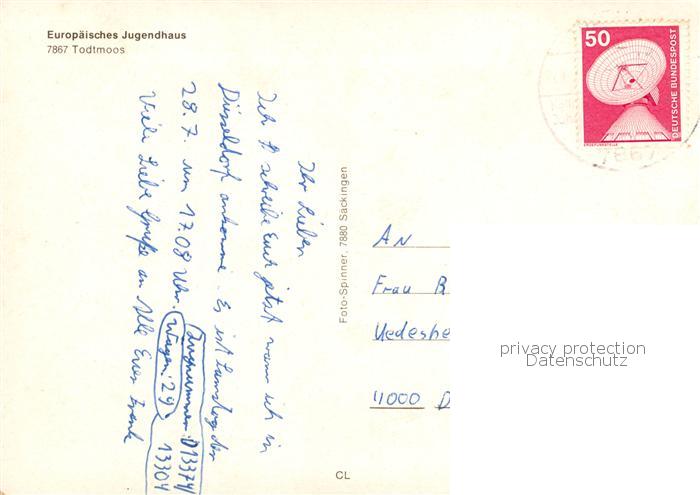 Europäisches Jugendhaus
7867 Todtmoos
50
DEUTSCHE BUNDESPOST
ERDEFUNKSTELLE
7867
Ihr Lieben
Ich schreibe Euch jetzt wann ich in
Düsseldorf ankomme. Es ist Samstag der
28.7. um 17.08 Uhr. Zugnummer: D13374/
Wagen: 29 13304
Viele Liebe Grüße an Alle Euer Frank
Foto-Spinner, 7880 Säckingen
AN
Frau B
Uedeshe
4000 D
privacy protection
Datenschutz
CL